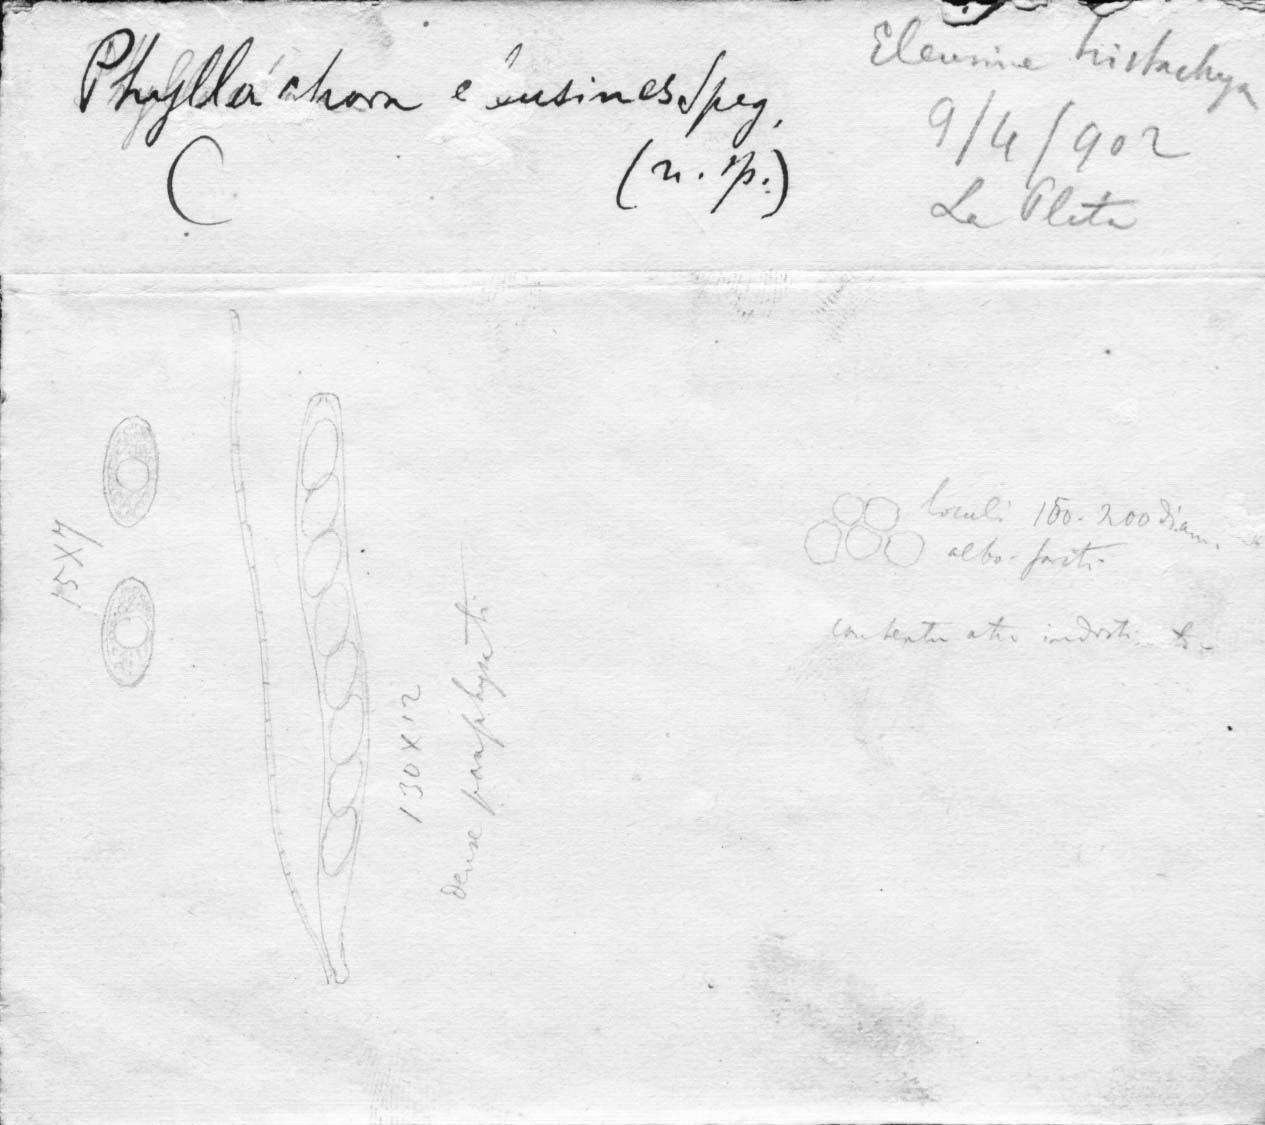 Phyllachora eleusines Speg.
(n. sp.)
Eleusine tristachya
9/4/902
La Plata
15X7
130X12
dense paraphysati
loculi 150-200 diam.
albo-farcti
contextu atro